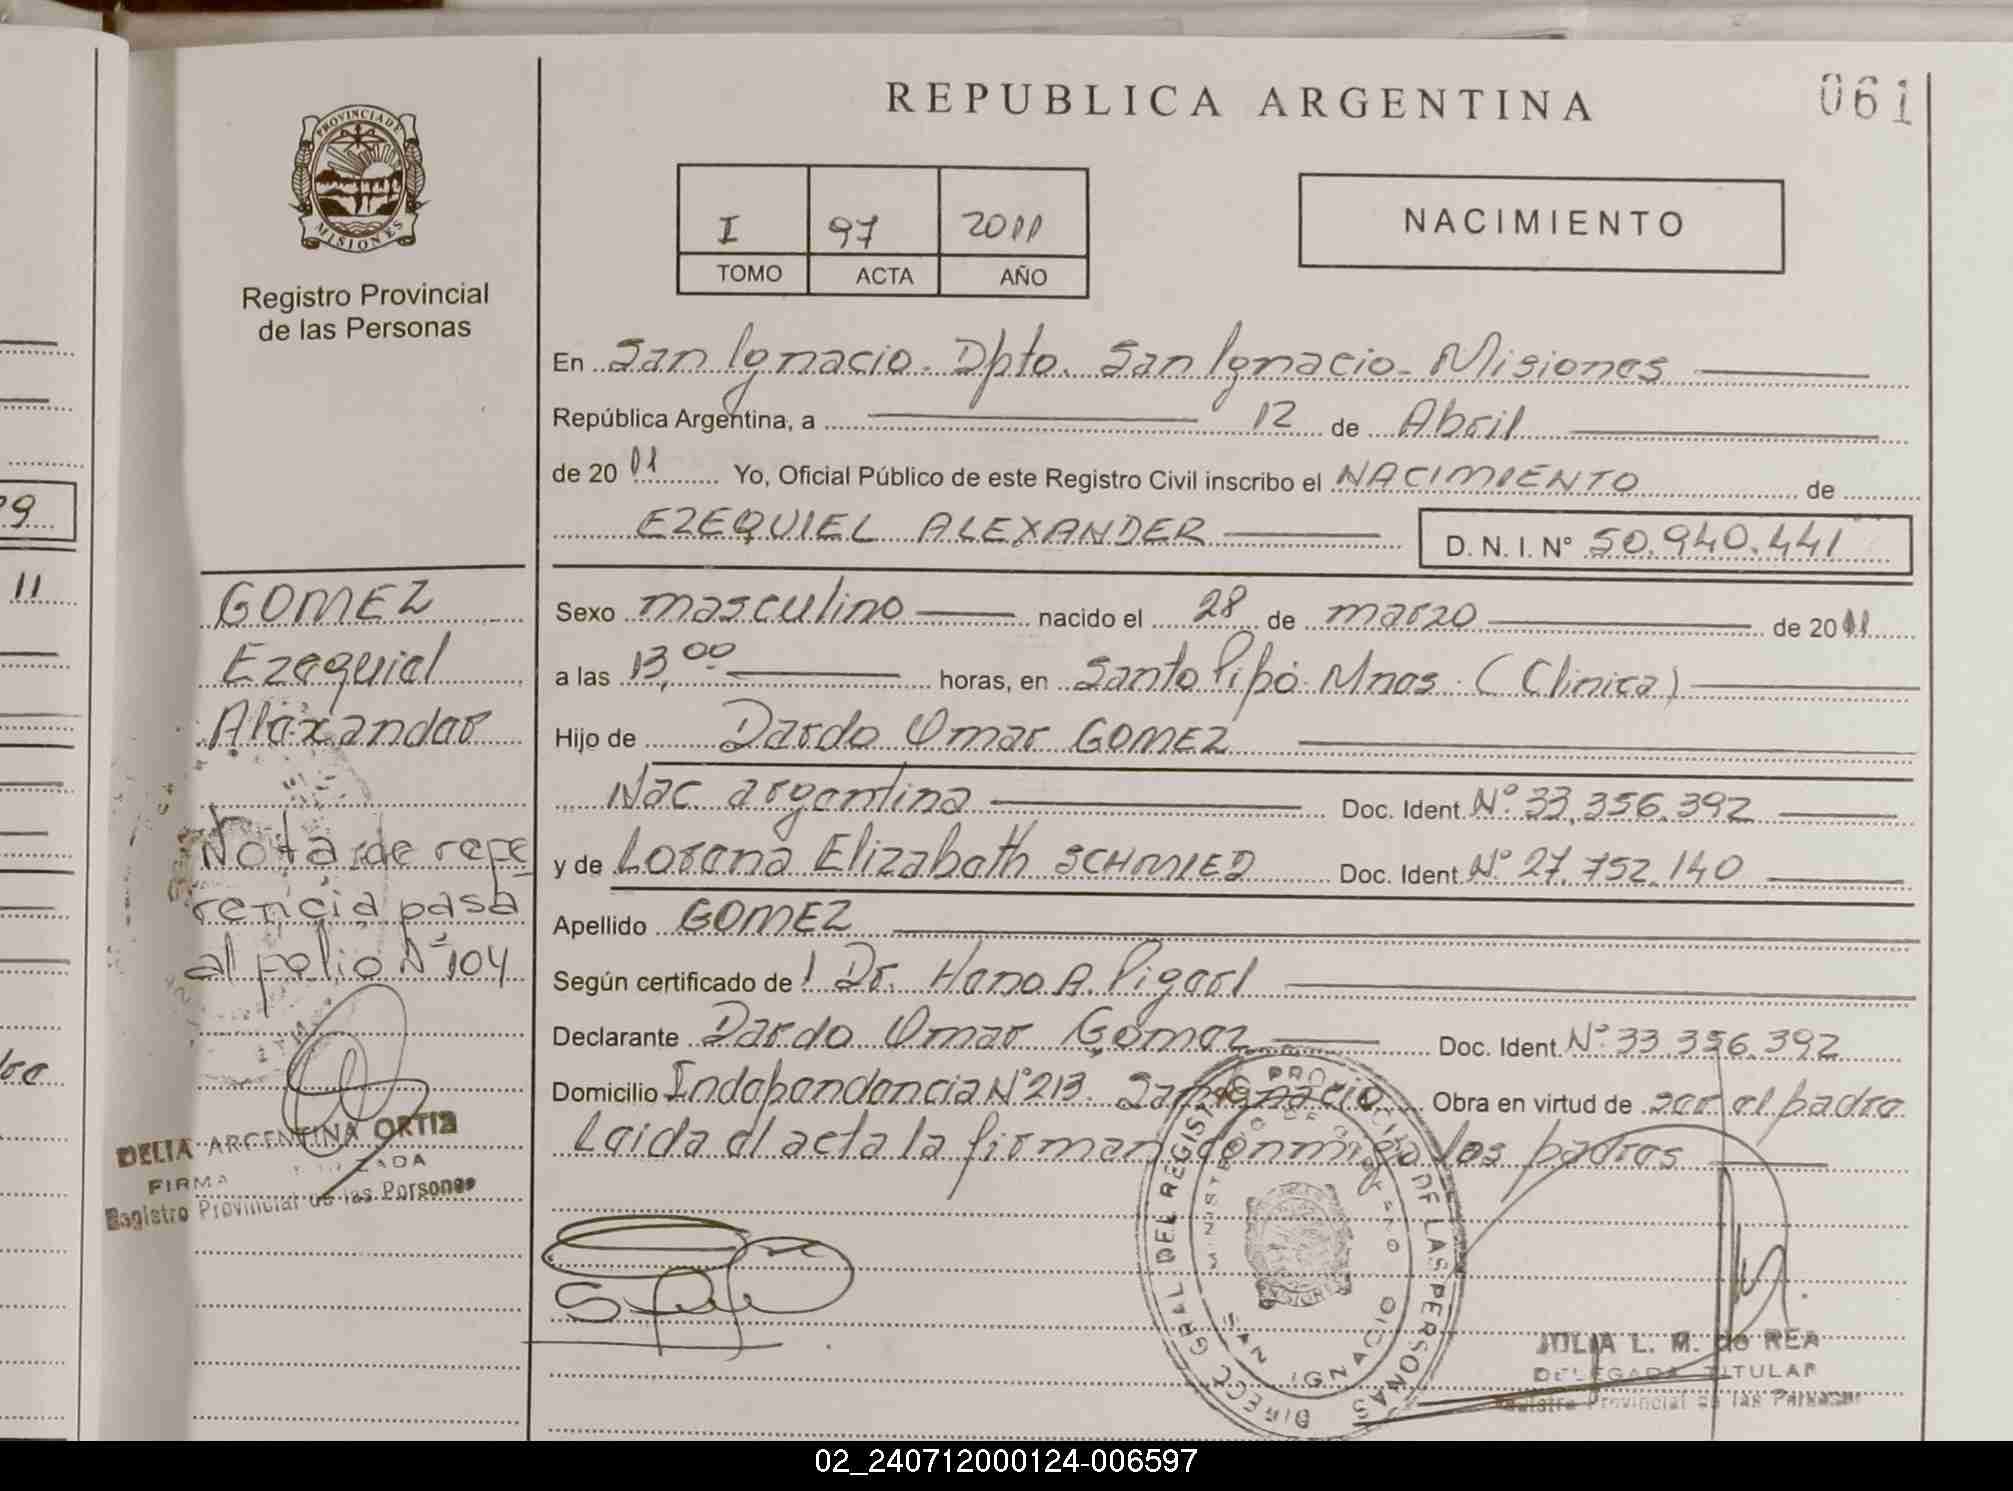 REPUBLICA ARGENTINA
061
PROVINCIA DE
MISIONES
Registro Provincial
de las Personas
I 97 2011
TOMO ACTA AÑO
NACIMIENTO
En San Ignacio. Dpto. San Ignacio. Misiones
República Argentina, a 12 de Abril
de 2011 Yo, Oficial Público de este Registro Civil inscribo el NACIMIENTO de
EZEQUIEL ALEXANDER D. N. I. N° 50.940.441
Sexo masculino nacido el 28 de marzo de 2011
a las 13,00 horas, en Santo Pipó. Mnes. (Clinica)
Hijo de Dardo Omar GOMEZ
Nac. argentina Doc. Ident. N° 33.356.392
y de Lorena Elizabeth SCHMIED Doc. Ident. N° 27.752.140
Apellido GOMEZ
Según certificado de Dr. A.
Declarante Dardo Omar Gomez Doc. Ident. N° 33.356.392
Domicilio Independencia N° 213. San Ignacio Obra en virtud de ser el padre
Leida el acta la firman conmigo los padres
GOMEZ
Ezequiel
Alexander
Nota de refe
rencia pasa
al folio N° 104
DELIA ARGENTINA ORTIZ
FIRMA
Registro Provincial de las Personas
DIRECC GRAL DEL REGISTRO PRO DE LAS PERSONAS
SAN IGNACIO
JULIA L. M. de REA
DELEGADA TITULAR
Registro Provincial de las Personas
9
11
02_240712000124-006597